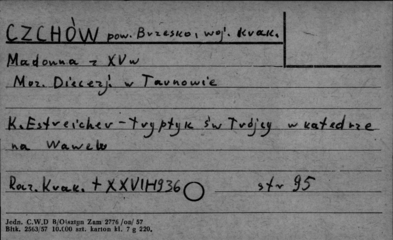 CZCHÓW pow. Brzesko, woj. Krak.
Madonna z XV w
Muz. Diecezj. w Tarnowie
K. Estreicher - Tryptyk św Trójcy w katedrze
na Wawelu
Rocz. Krak. t XXVII 1936 str 95
Jedn. C.W.D B/Olsztyn Zam 2776 /oa/ 57
Błtk. 2563/57 10.000 szt. karton kl. 7 g 220.